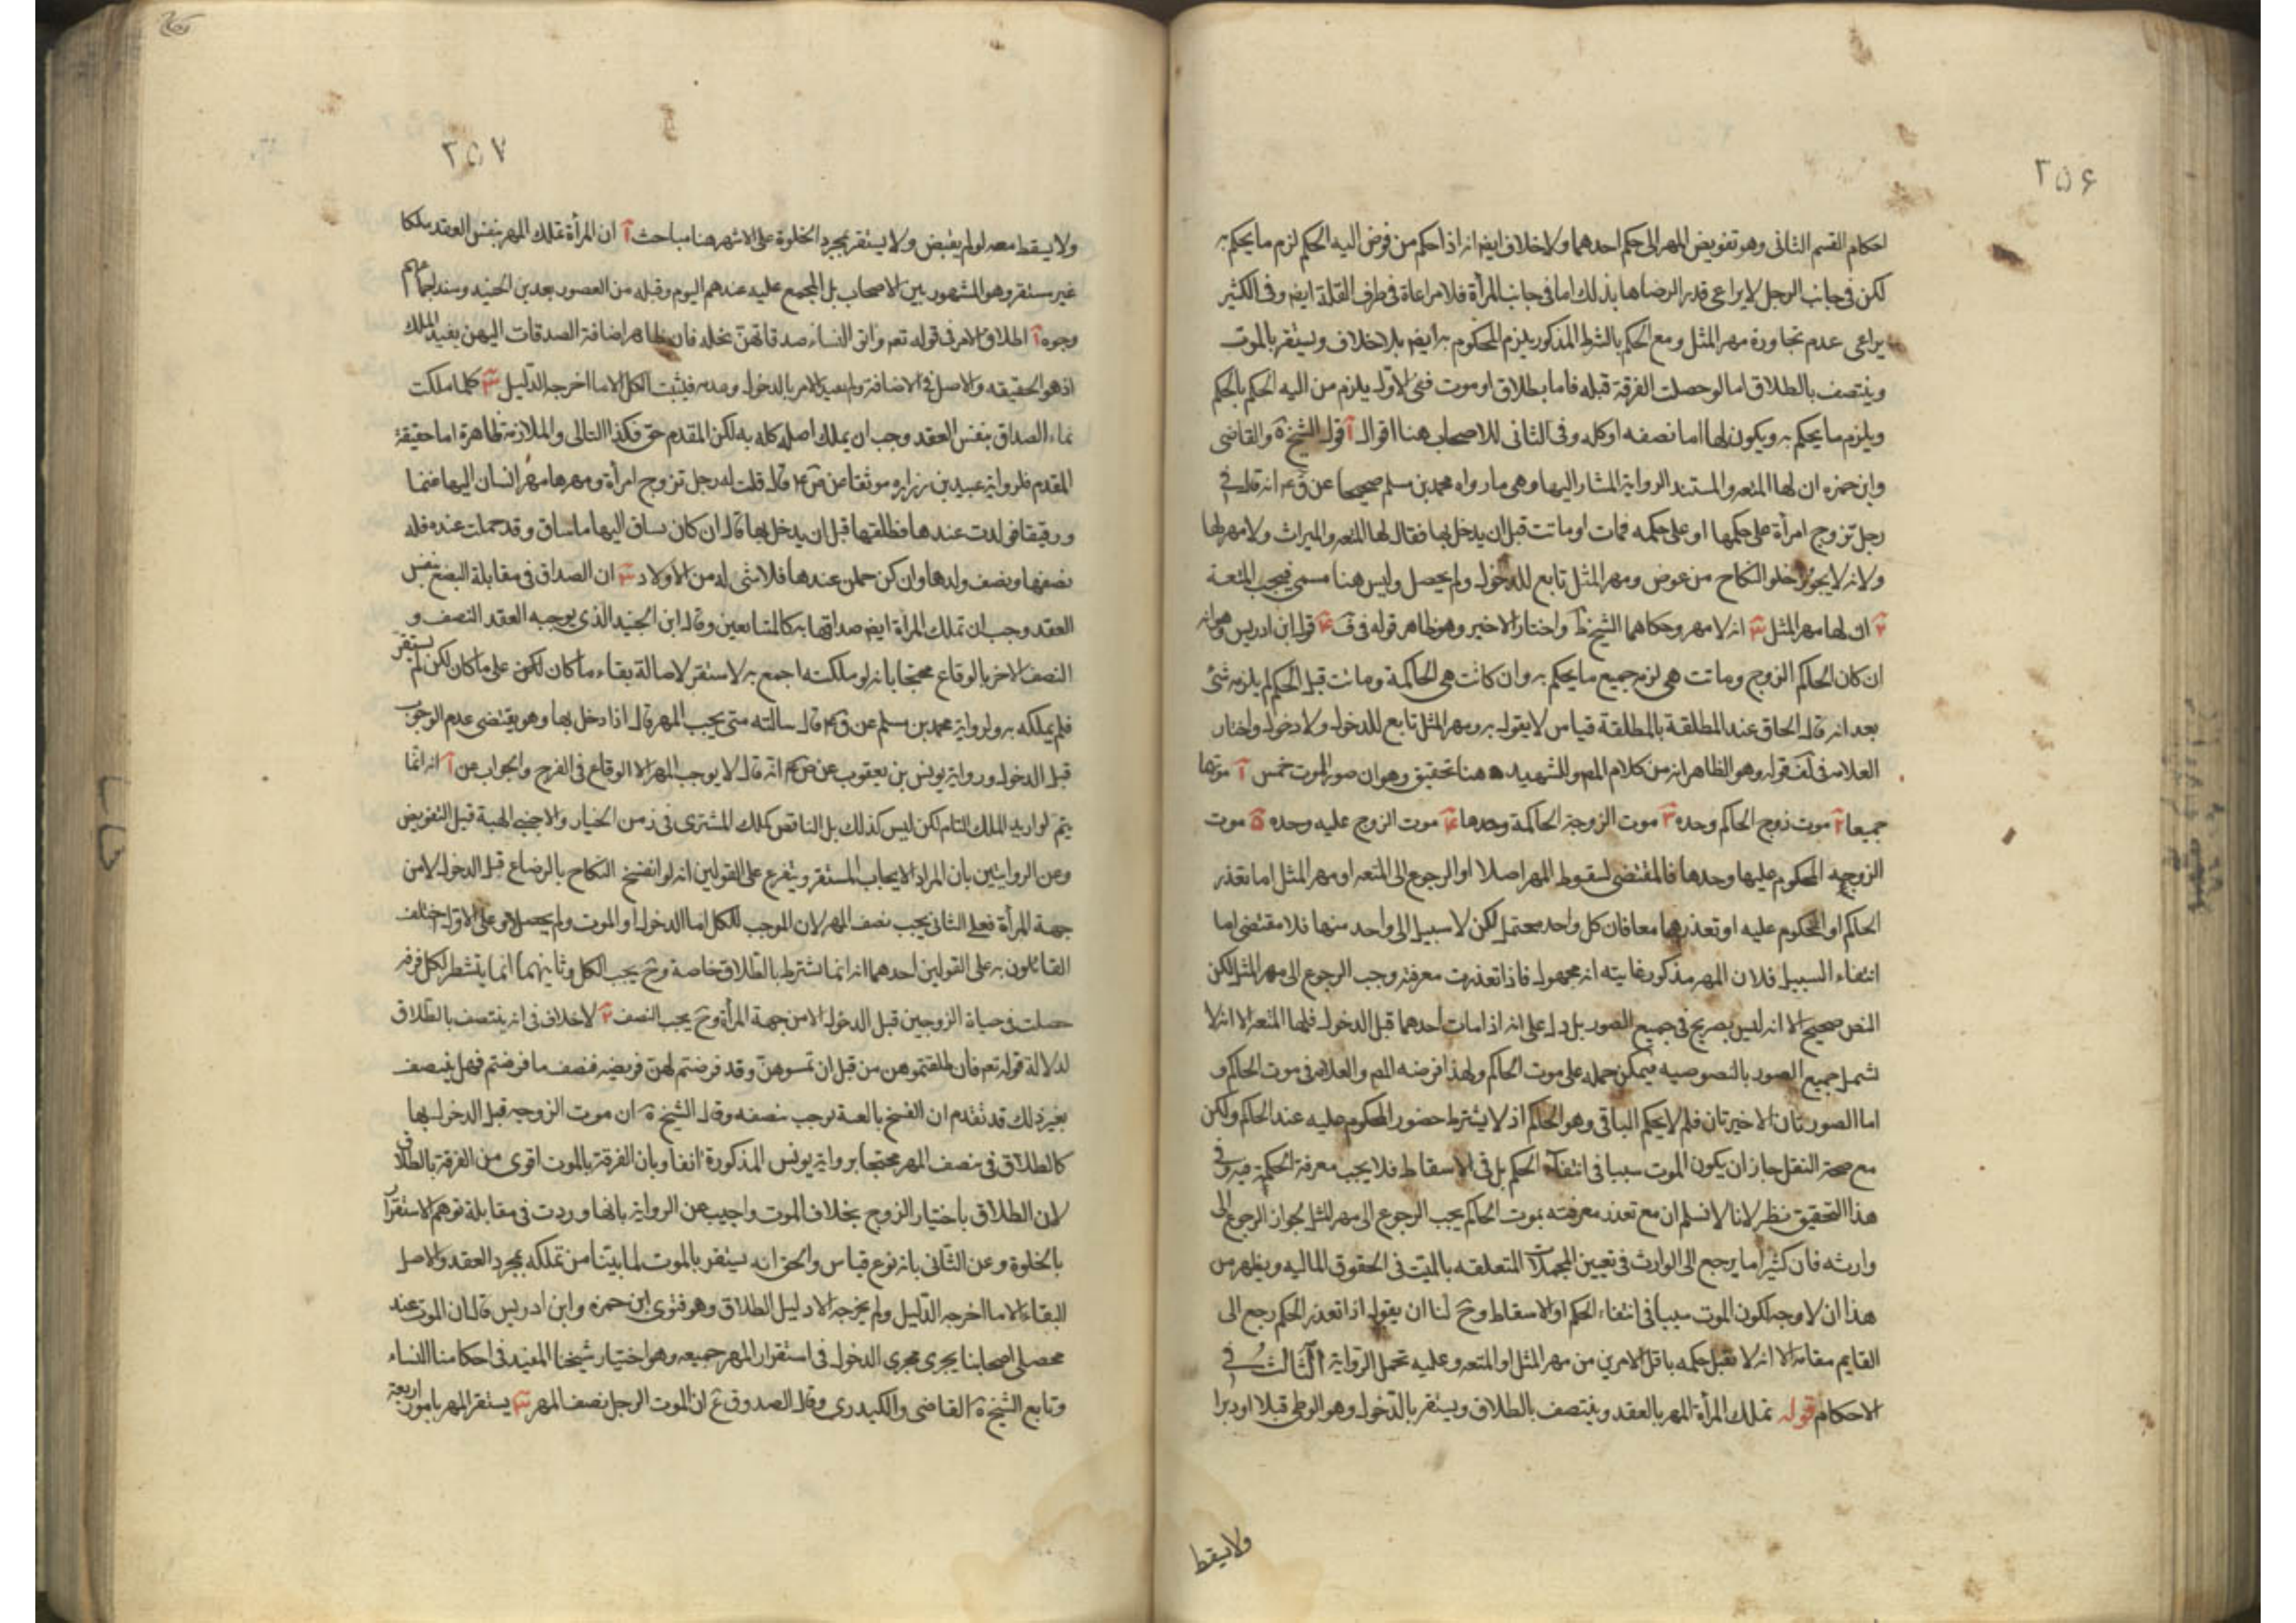 ٢٥۶
احكام القسم الثانى وهو تفويض المهر الى حكم احدهما ولا خلاف ايضا انه اذا حكم من فوض اليه الحكم لزم ما يحكم به
لكن فى جانب الرجل لا يراعى قدر الرضاها بذلك اما فى جانب المرأة فلا مراعاة فى طرف القلة ايضا وفى الكثير
يراعى عدم تجاوزه مهر المثل ومع الحكم بالشرط المذكور يلزم المحكوم به ايضا بلا خلاف ويستقر بالموت
وينتصف بالطلاق اما لو حصلت الفرقة قبله فاما بطلاق او موت ففى الاول يلزم من اليه الحكم بالحكم
ويلزم ما يحكم به ويكون لها اما نصفه او كله وفى الثانى للاصحاب هنا اقوال آ قول الشيخ ره والقاضى
وابن حمزه ان لها المتعه والمستند الرواية المشار اليها وهى ما رواه محمد بن مسلم صحيحا عن قر ع انه قال فى
رجل تزوج امرأة على حكمها او على حكمه فمات او ماتت قبل ان يدخل بها فقال لها المتعه والميراث ولا مهر لها
ولانه لا يجوز خلو النكاح من عوض ومهر المثل تابع للدخول ولم يحصل وليس هنا مسمى فيجب المتعة
٢ ان لها مهر المثل ٣ انه لا مهر وحكاهما الشيخ ط واختار الاخير وهو ظاهر قوله فى ف ۴ قول ابن ادريس وهو انه
ان كان الحاكم الزوج وماتت هى لزم جميع ما يحكم به وان كانت هى الحاكمة وماتت قبل الحكم لم يلزمه شئ
بعد انه قال الحاق عند المطلقة بالمطلقة قياس لا يقول به ومهر المثل تابع للدخول ولا دخول واختار
العلامه فى لف قوله وهو الظاهر انه من كلام المص والشهيد ه هنا تحقيق وهو ان صور الموت خمس آ موتها
جميعا ٢ موت زوج الحاكم وحده ٣ موت الزوجة الحاكمة وحدها ۴ موت الزوج عليه وحده ۵ موت
الزوجه المحكوم عليها وحدها فالمقتضى لسقوط المهر اصلا او الرجوع الى المتعه او مهر المثل اما تعذر
الحاكم او المحكوم عليه او تعذرهما معا فان كل واحد محتمل لكن لا سبيل الى واحد منها فلا مقتضى اما
انتفاء السبيل فلان المهر مذكور غايته انه مجهول فاذا تعذرت معرفته وجب الرجوع الى مهر المثل لكن
النص صحيح الا انه ليس بصريح فى جميع الصور بل دل على انه اذا مات احدهما قبل الدخول فلها المتعه الا انه لا
شمل جميع الصور بالنصوصيه فيمكن حمله على موت الحاكم ولهذا فرضه المص والعلامه فى موت الحاكم و
اما الصورتان الاخيرتان فلم لا يحكم الباقى وهو الحاكم اذ لا يشترط حضور المحكوم عليه عند الحاكم ولكن
مع صحة النقل جاز ان يكون الموت سببا فى انتفاء الحكم بل فى الاسقاط فلا يجب معرفة الحكمة فيه وفى
هذا التحقيق نظر لانا لا نسلم ان مع تعذر معرفته بموت الحاكم يجب الرجوع الى مهر المثل لجواز الرجوع الى
وارثه فان كثيرا ما يرجع الى الوارث فى تعيين المجملات المتعلقه بالميت فى الحقوق الماليه ويظهر من
هذا ان لا وجه لكون الموت سببا فى انتفاء الحكم او الاسقاط وح لنا ان يقول اذا تعذر الحكم رجع الى
القايم مقامه الا انه لا تقبل حكمه باقل الامرين من مهر المثل او المتعه وعليه تحمل الرواية الثالث فى
الاحكام قوله تملك المرأة المهر بالعقد وينتصف بالطلاق ويستقر بالدخول وهو الوطى قبلا او دبرا
ولا يسقط
٢٥٧
ولا يسقط معه لو لم يقبض ولا يستقر بمجرد الخلوة على الاشهر هنا مباحث آ ان المرأة تملك المهر بنفس العقد ملكا
غير مستقر وهو المشهور بين الاصحاب بل المجمع عليه عندهم اليوم وقبله من العصور بعد بن الجنيد وسند اجماعهم
وجوه آ اطلاق الامر فى قوله تعم واتوا النساء صدقاتهن نحله فان ظاهر اضافة الصدقات اليهن يفيد الملك
اذ هو الحقيقه والاصل فى الاضافة ولم يقيد الامر بالدخول وعدمه فيثبت الكل الا ما اخرجه الدليل ٢ كلما ملكت
نماء الصداق بنفس العقد وجب ان يملك اصله كله به لكن المقدم حق فكذا التالى والملازمة ظاهرة اما حقيقة
المقدم فلرواية عبيد بن زراره موثقا عن ص ع قال قلت له رجل تزوج امرأة ومهرها مهر انسان اليها غنما
ورقيقا فولدت عندها فطلقها قبل ان يدخل بها قال ان كان ساق اليها ما ساق وقد حملت عنده فله
نصفها ونصف ولدها وان كن حملن عندها فلا شى له من الاولاد ٣ ان الصداق فى مقابلة البضع بنفس
العقد وجب ان تملك المرأة ايضا صداقها به كالمتبايعين وقال ابن الجنيد الذى يوجبه العقد النصف و
النصف الاخر بالوقاع محتجا بانه لو ملكته اجمع به لاستقر لاصالة بقاء ما كان لكون على ما كان لكن لم يستقر
فلم يملكه به ولرواية محمد بن مسلم عن ق ع قال سالته متى يجب المهر قال اذا دخل بها وهو يقتضى عدم الوجوب
قبل الدخول ورواية يونس بن يعقوب عن ص ع انه قال لا يوجب المهر الا الوقاع فى الفرج والجواب عن آ انه انما
يتم لو اريد الملك التام لكن ليس كذلك بل الناقص كملك المشترى فى زمن الخيار والاجنبى الهبة قبل التعويض
وعن الروايتين بان المراد الايجاب المستقر ويتفرع على القولين انه لو انفسخ النكاح بالرضاع قبل الدخول لا من
جهة المرأة فعلى الثانى يجب نصف المهر لان الموجب للكل اما الدخول او الموت ولم يحصلا وعلى الاول اختلف
القائلون به على القولين احدهما انه انما تشترط بالطلاق خاصة وح يجب الكل وثانيهما انما يتشطر لكل فرقة
حصلت فى حياة الزوجين قبل الدخول الا من جهة المرأة وح يجب النصف ٢ لا خلاف فى انه ينتصف بالطلاق
لدلالة قوله تعم فان طلقتموهن من قبل ان تمسوهن وقد فرضتم لهن فريضه فنصف ما فرضتم فهل ينتصف
بغير ذلك قد تقدم ان الفسخ بالعنة يوجب نصفه وقال الشيخ ره ان موت الزوجه قبل الدخول بها
كالطلاق فى نصف المهر محتجا برواية يونس المذكورة انفا وبان الفرقة بالموت اقوى من الفرقة بالطلاق
لان الطلاق باختيار الزوج بخلاف الموت واجيب عن الرواية بانها وردت فى مقابلة توهم الاستقرار
بالخلوة وعن الثانى بانه نوع قياس والحق انه يستقر بالموت لما بيتنا من تملكه بمجرد العقد والاصل
البقاء الا ما اخرجه الدليل ولم يخرجه الا دليل الطلاق وهو فتوى ابن حمزه وابن ادريس قال ان الموت عند
محصلى اصحابنا يجرى مجرى الدخول فى استقرار المهر جميعه وهو اختيار شيخنا المفيد فى احكام النساء
وتابع الشيخ ره القاضى والكيدرى وقال الصدوق ع ان لموت الرجل نصف المهر ٣ يستقر المهر بامور اربعة